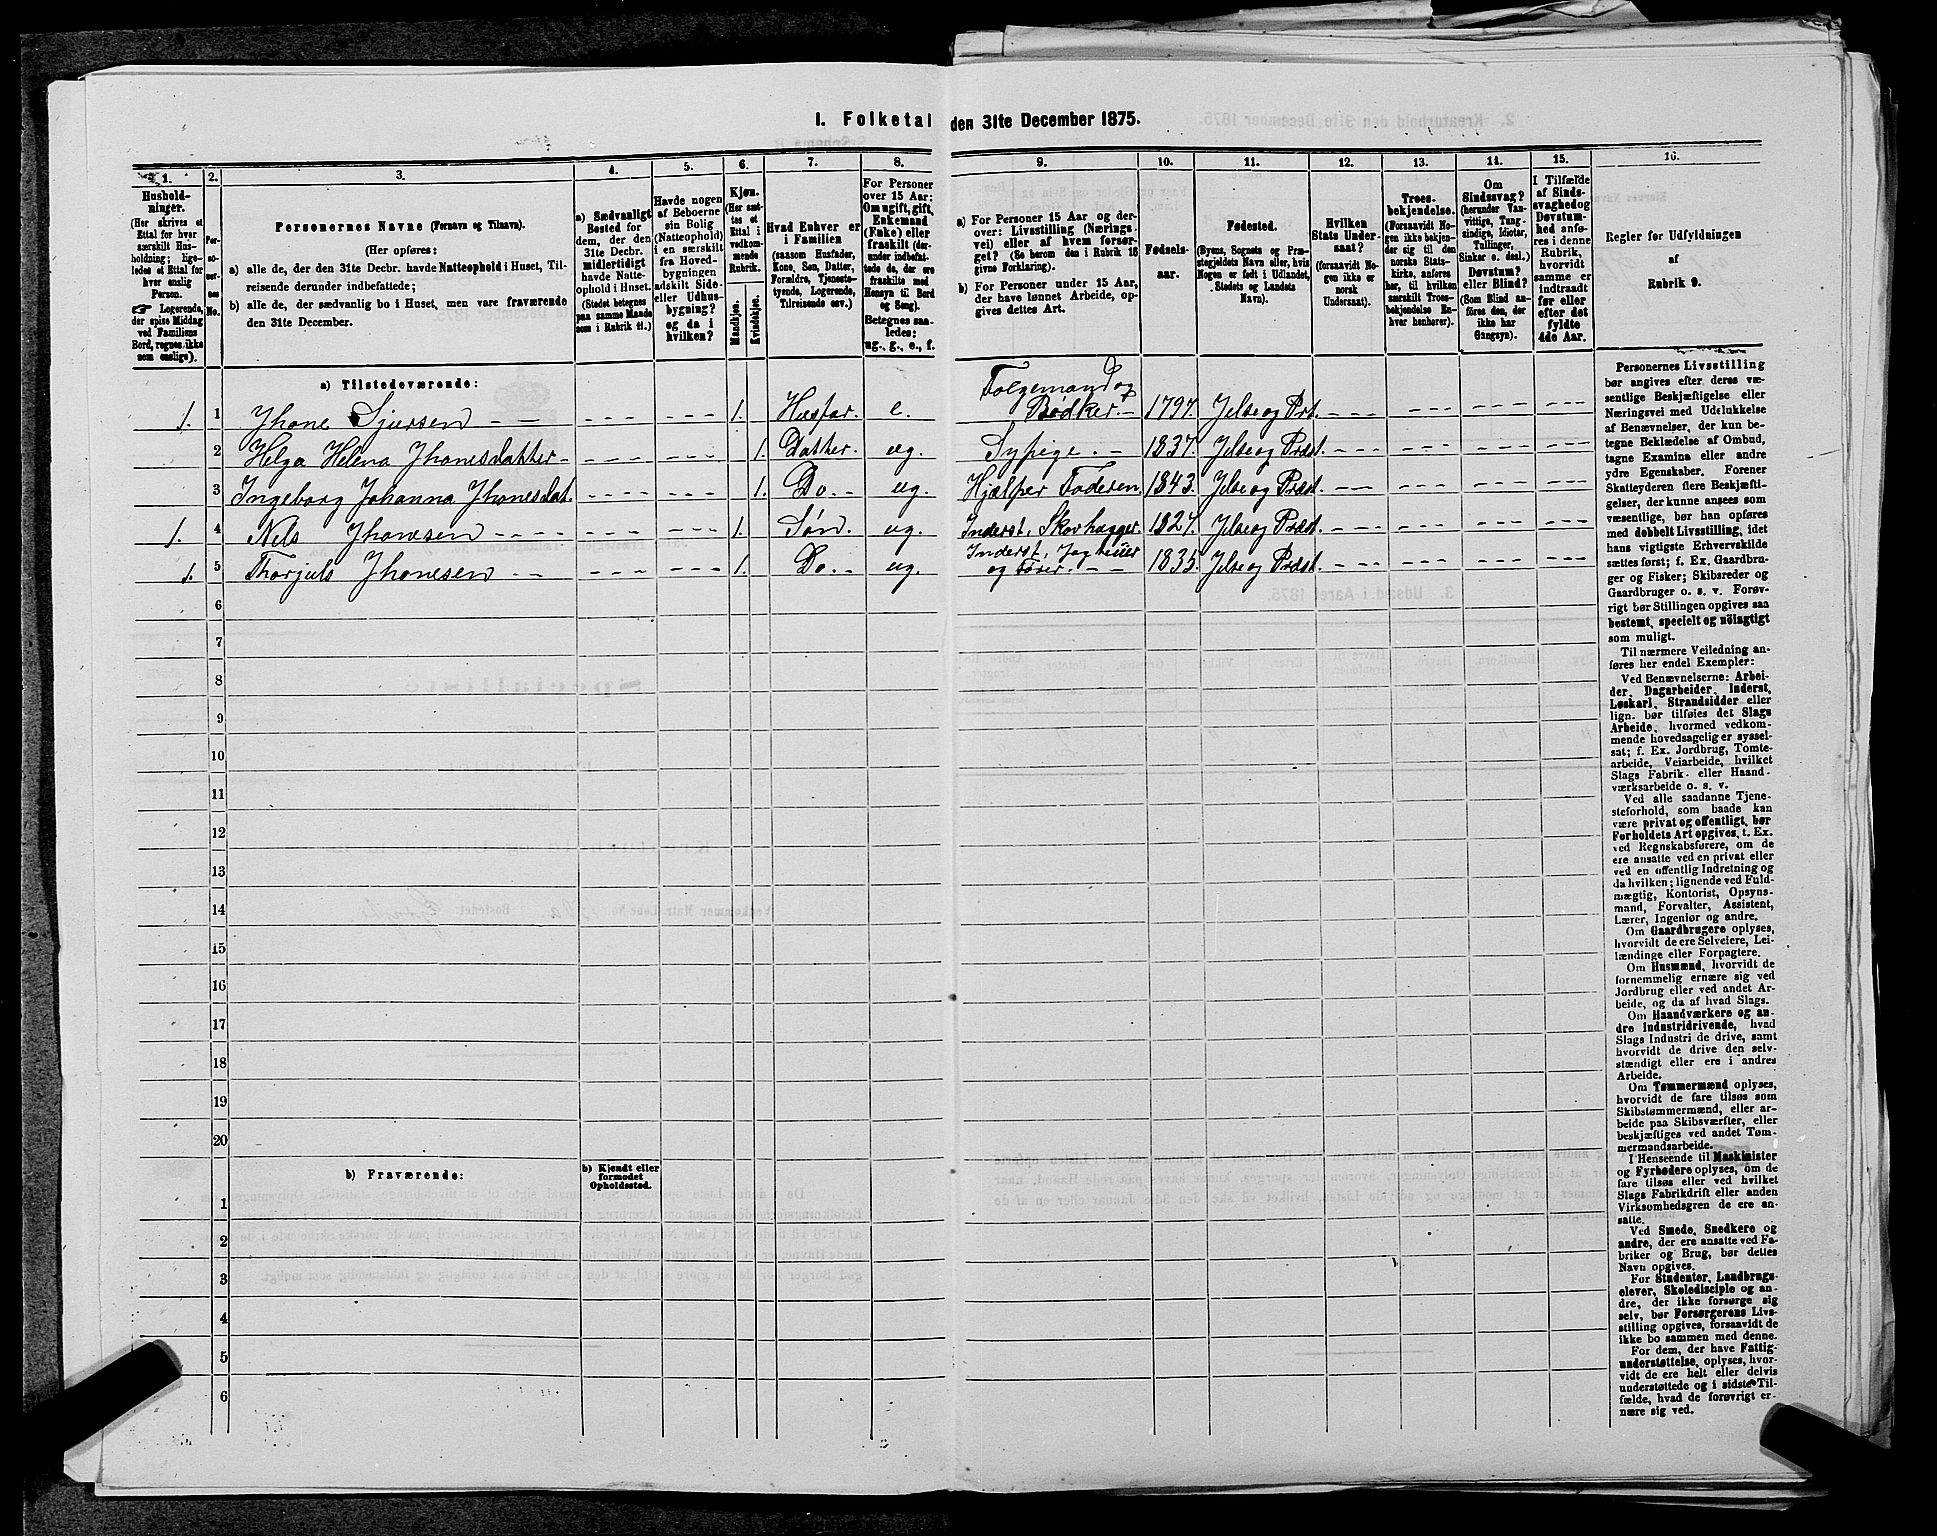 1. Folketal den 31te December 1875.
1. 2. 3. 4. 5. 6. 7. 8. 9. 10. 11. 12. 13. 14. 15. 16.
Hushold-
ninger.
(Her skrives et
Ettal for hver
særskilt Hus-
holdning; lige-
ledes et Ettal for
hver enslig
Person.
☞ Logerende,
der spise Middag
ved Familiens
Bord, regnes ikke
som enslige).
Per-
so-
ner-
nes
No.
Personernes Navne (Fornavn og Tilnavn).
(Her opføres:
a) alle de, der den 31te Decbr. havde Natteophold i Huset, Til-
reisende derunder indbefattede;
b) alle de, der sædvanlig bo i Huset, men vare fraværende
den 31te December.
a) Sædvanligt
Bosted for
dem, der den
31te Decbr.
midlertidigt
havde Natte-
ophold i Huset.
(Stedet betegnes
paa samme Maade
som i Rubrik 11.)
Havde nogen
af Beboerne
sin Bolig
(Natteophold)
i en særskilt
fra Hoved-
bygningen
adskilt Side-
eller Udhus-
bygning?
og da i
hvilken?
Kjøn.
(Her sæt-
tes et
Ettal i
vedkom-
mende
Rubrik.
Mandkjøn.
Kvindekjøn.
Hvad Enhver er
i Familien
(saasom Husfader,
Kone, Søn, Datter,
Forældre, Tjeneste-
tyende, Logerende,
Tilreisende osv.)
For Personer
over 15 Aar:
Om ugift, gift,
Enkemand
(Enke) eller
fraskilt (der-
under indbefat-
tede de, der ere
fraskilte med
Hensyn til Bord
og Seng).
Betegnes saa-
ledes:
ug., g., e., f.
a) For Personer 15 Aar og der-
over: Livsstilling (Nærings-
vei) eller af hvem forsør-
get? (Se herom den i Rubrik 16
givne Forklaring).
b) For Personer under 15 Aar,
der have lønnet Arbeide, op-
gives dettes Art.
Fødsels-
aar.
Fødested.
(Byens, Sognets og Præ-
stegjeldets Navn eller, hvis
Nogen er født i Udlandet,
Stedets og Landets
Navn).
Hvilken
Stats Under-
saat?
(forsaavidt No-
gen ikke er
norsk
Undersaat).
Troes-
bekjendelse.
(Forsaavidt No-
gen ikke bekjen-
der sig til den
norske Stats-
kirke, anføres
her, til hvilken
særskilt Troes-
bekjendelse En-
hver henhører).
Om
Sindssvag?
(herunder Van-
vittige, Tung-
sindige, Idioter,
Tullinger,
Sinker o. desl.)
Døvstum?
eller Blind?
(Som Blind an-
føres den, der
ikke har
Gangsyn).
I Tilfælde
af Sinds-
svaghed og
Døvstum-
hed anfø-
res i denne
Rubrik,
hvorvidt
samme er
indtraadt
før eller
efter det
fyldte
4de Aar.
Regler for Udfyldningen
af
Rubrik 9.
a) Tilstedeværende:
1. 1 Jhone Sjursen 1. Husfar. e. Folgemand og Bødker. 1797. Jelse og Prt.
2 Helga Helena Jhonesdatter 1. Datter. ug. Sypige. 1837. Jelse og Præst.
3 Ingeborg Johanna Jhonesdat. 1. Do. ug. Hjælper Faderen 1843. Jelse og Præst.
1. 4 Nels Jhonesen 1. Søn. ug. Inderst. Skovhugger. 1827. Jelse og Præst.
1. 5 Thorjuls Jhonesen 1. Do. ug. Inderst, 1835. Jelse og Præst.
6
7
8
9
10
11
12
13
14
15
16
17
18
19
20
b) Fraværende:
b) Kjendt eller
formodet
Opholdssted.
1
2
3
4
5
6
Personernes Livsstilling
bør angives efter deres væ-
sentlige Beskjæftigelse eller
Næringsvei med Udelukkelse
af Benævnelser, der kun be-
tegne Beklædelse af Ombud,
tagne Examina eller andre
ydre Egenskaber. Forener
Skatteyderen flere Beskjæfti-
gelser, der kunne ansees som
væsentlige, bør han opføres
med dobbelt Livsstilling, idet
hans vigtigste Erhvervskilde
sættes først; f. Ex. Gaardbru-
ger og Fisker; Skibsreder og
Gaardbruger o. s. v. Forøv-
rigt bør Stillingen opgives saa
bestemt, specielt og nöiagtigt
som muligt.
Til nærmere Veiledning an-
føres her endel Exempler:
Ved Benævnelserne: Arbei-
der, Dagarbeider, Inderst,
Løskarl, Strandsidder eller
lign. bør tilføies det Slags
Arbeide, hvormed vedkom-
mende hovedsagelig er syssel-
sat; f. Ex. Jordbrug, Tomte-
arbeide, Veiarbeide, hvilket
Slags Fabrik- eller Haand-
værksarbeide o. s. v.
Ved alle saadanne Tjene-
steforhold, som baade kan
være privat og offentligt, bør
Forholdets Art opgives, t. Ex.
ved Regnskabsførere, om de
ere ansatte ved en privat eller
ved en offentlig Indretning og
da hvilken; lignende ved Fuld-
mægtig, Kontorist, Opsyns-
mand, Forvalter, Assistent,
Lærer, Ingeniør og andre.
Om Gaardbrugere oplyses,
hvorvidt de ere Selveiere, Lei-
lændinge eller Forpagtere.
Om Husmænd, hvorvidt de
fornemmelig ernære sig ved
Jordbrug eller ved andet Ar-
beide, og da af hvad Slags.
Om Haandværkere og an-
dre Industridrivende, hvad
Slags Industri de drive, samt
hvorvidt de drive den selv-
stændigt eller ere i andres
Arbeide.
Om Tømmermænd oplyses,
hvorvidt de fare tilsøs som
Skibstømmermænd, eller ar-
beide paa Skibsværfter, eller
beskjæftiges ved andet Tøm-
mermandsarbeide.
I Henseende til Maskinister
og Fyrbødere oplyses, om de
fare tilsøs eller ved hvilket
Slags Fabrikdrift eller anden
Virksomhedsgren de ere an-
satte.
Ved Smede, Snedkere og
andre, der ere ansatte ved Fa-
briker og Brug, bør dettes
Navn opgives.
For Studenter, Landbrugs-
elever, Skoledisciple og an-
dre, der ikke forsørge sig
selv, bør Forsørgerens Livs-
stilling opgives, forsaavidt de
ikke bo sammen med denne.
For dem, der have Fattig-
understøttelse, oplyses, hvor-
vidt de ere helt eller delvis
understøttede og i sidste Til-
fælde, hvad de forøvrigt er-
nære sig ved.